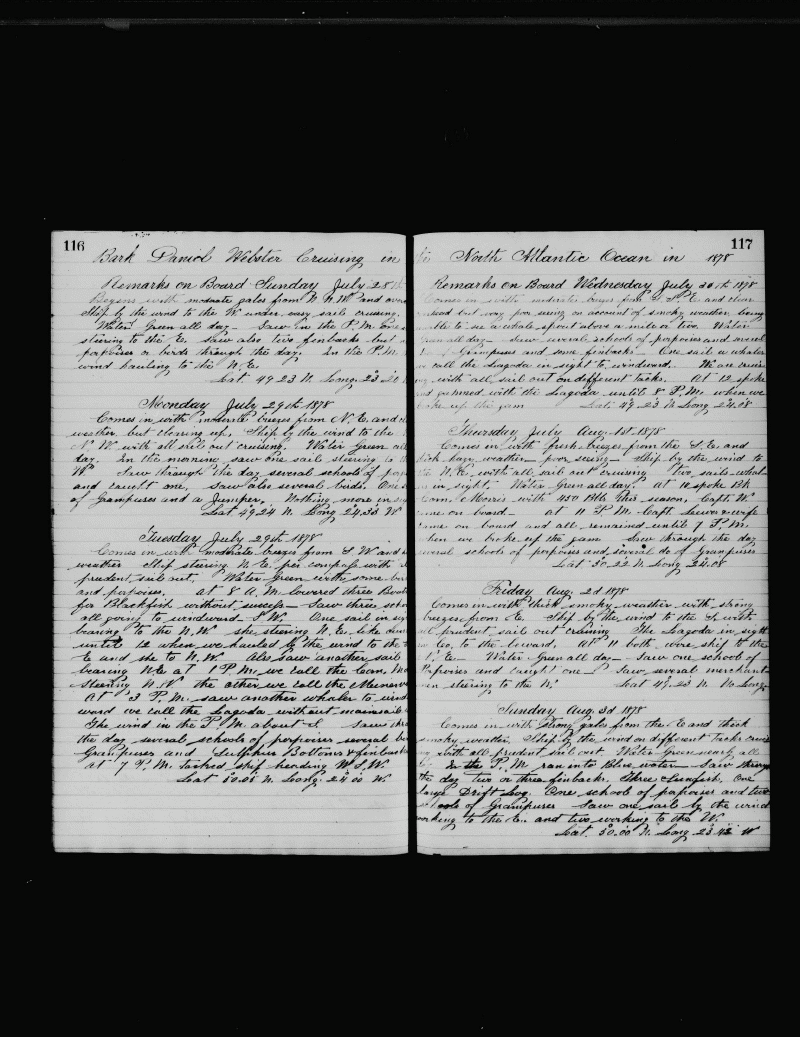 116
Bark Daniel Webster Cruising in
Remarks on Board Sunday July 28th
Begins with moderate gales from N.N.W and
Ship by the wind to the W. under easy sail cruising.
Water Green all day - Saw in the P.M. one
steering to the E. saw also two finbacks but
porpoises or birds through the day. In the P.M.
wind hauling to the N.E.
Lat 49.23 N. Long. 23.20
Moonday July 29th 1878
Comes in with moderate breezes from N.E. and
weather but cloning up. Ship by the wind to the
N.W. with all sail out cruising. Water Green all
day. In the morning saw one sail steering to
W. Saw through the day several schools of
and caught one. saw also several birds. One
of Grampuses and a Jumper. Nothing more in
Lat 49.24 N. Long 24.30 W
Tuesday July 29th 1878
Comes in with moderate breezes from S.W and
weather Ship steering N.E. per compass with
prudent sail out. Water Green with some
and porpoises. at 8 A.M. lowered three Boats
for Blackfish without success - Saw three
all going to windward S.W. One sail in
bearing to the N.W. she steering N.E. like
until 12 when we hauled by the wind to the
E and she to N.W. Also Saw another sail
bearing N.E at 1 P.M. we call the Com.
Steering N.W the other we call the
At 3 P.M. saw another whaler to
ward we call the Lagoda without mainsail
The wind in the P.M. about S Saw
the day several schools of porpoises several
Grampuses and Sulphur Bottoms & finbacks
at 7 P.M. tacked ship heading W.S.W.
Lat 50.05 N. Long. 24.00 W
117
North Atlantic Ocean in 1878
Remarks on Board Wednesday July 30th 1878
Comes in with moderate breezes from S.E. and clear
head but very poor seeing on account of smoky weather being
able to see a whale spout above a mile or two. Water
Green all day - Saw several schools of porpoises and several
Grampuses and some finbacks - One sail a whaler
we call the Lagoda in sight to windward. We are
with all sail out on different tacks. At 12 spoke
and gammed with the Lagoda until 8 P.M. when we
broke up the gam Lat 49-23 N Long 24.08
Thursday July Aug. 1st 1878
Comes in with fresh breezes from the S.E. and
hazy weather poor seeing Ship by the wind to
N.E. with all sail out cruising two sails
in sight. Water Green all day. at 10 spoke Bk
Com. Morris with 450 Bbls this season, Capt. W
came on board - at 11 P.M. Capt. Lewis & wife
came on board and all remained until 7 P.M.
when we broke up the gam Saw through the day
several schools of porpoises and several do of Grampuses
Lat 50.22 N Long 24.08
Friday Aug. 2d 1878
Comes in with thick smoky weather with strong
breezes from E. Ship by the wind to the S. with
all prudent sail out cruising The Lagoda in sight
to the leward. At 11 both wore ship to the
N.E. Water Green all day - Saw one school of
Porpoises and caught one - Saw several merchant
steering to the N. Lat 49.23 N. No Long
Sunday Aug. 3d 1878
Comes in with Strong gales from the E and thick
smoky weather. Ship by the wind on different Tacks
with all prudent sail out Water Green nearly all
In the P.M. ran into Blue water - Saw through
the day two or three finbacks. three Sunfish. One
large Drift Log. One school of porpoises and two
schools of Grampuses Saw one sail by the wind
working to the E. and two working to the W.
Lat. 50.00 N. Long 23.42 W